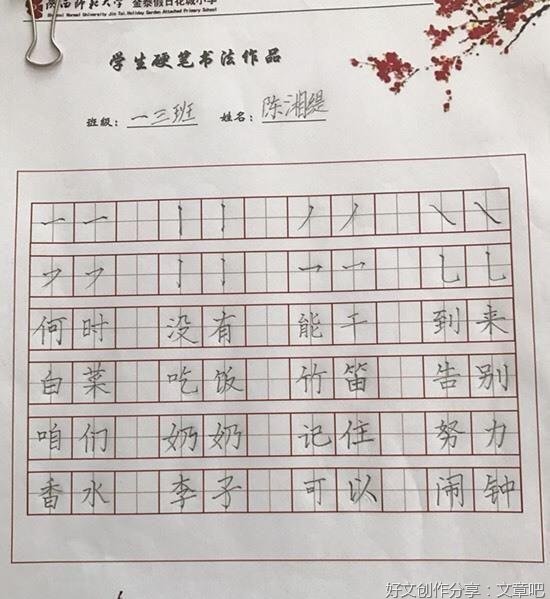 陕西师范大学 金泰假日花城小学
Shaanxi Normal University Jin Tai Holiday Garden Attached Primary School
学生硬笔书法作品
班级：一三班 姓名：陈湘缇
一 一 丨 丨 丿 丿 ㇏ ㇏
㇇ ㇇ 亅 亅 ㇖ ㇖ ㇄ ㇄
何时 没有 能干 到来
白菜 吃饭 竹笛 告别
咱们 奶奶 记住 努力
香水 李子 可以 闹钟
好文创作分享：文章吧